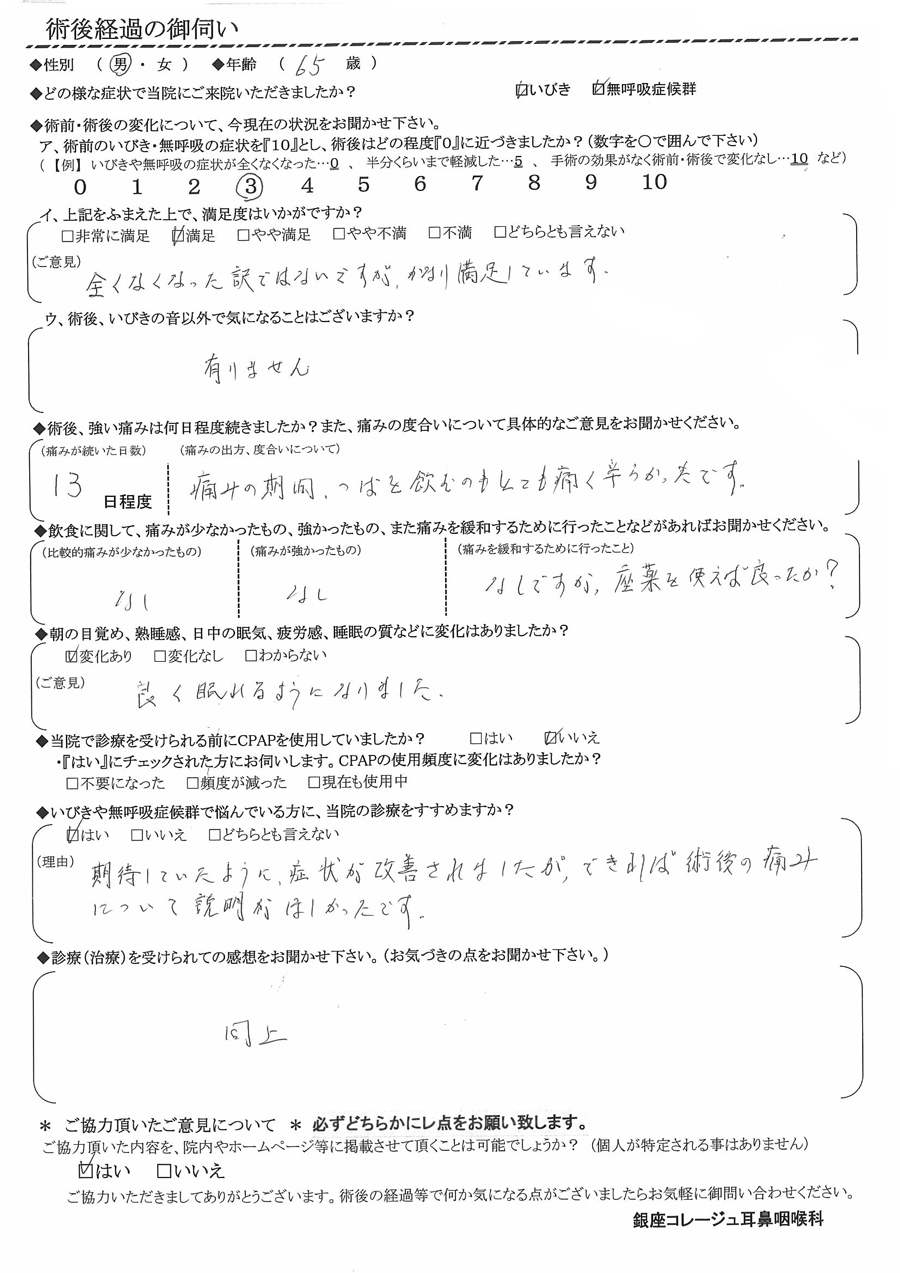 術後経過の御伺い
◆性別 ( 男 ・ 女 ) ◆年齢 ( 65 歳 )
◆どの様な症状で当院にご来院いただきましたか? ☑いびき ☑無呼吸症候群
◆術前・術後の変化について、今現在の状況をお聞かせ下さい。
ア、術前のいびき・無呼吸の症状を『10』とし、術後はどの程度『0』に近づきましたか?(数字を○で囲んで下さい)
(【例】 いびきや無呼吸の症状が全くなくなった…0 、 半分くらいまで軽減した…5 、 手術の効果がなく術前・術後で変化なし…10 など)
0 1 2 ③ 4 5 6 7 8 9 10
イ、上記をふまえた上で、満足度はいかがですか?
□非常に満足 ☑満足 □やや満足 □やや不満 □不満 □どちらとも言えない
(ご意見)
全くなくなった訳ではないですが、かなり満足しています。
ウ、術後、いびきの音以外で気になることはございますか?
有りません
◆術後、強い痛みは何日程度続きましたか?また、痛みの度合いについて具体的なご意見をお聞かせください。
(痛みが続いた日数) (痛みの出方、度合いについて)
13 日程度 痛みの期間、つばを飲むのもとても痛く辛らかったです。
◆飲食に関して、痛みが少なかったもの、強かったもの、また痛みを緩和するために行ったことなどがあればお聞かせください。
(比較的痛みが少なかったもの) (痛みが強かったもの) (痛みを緩和するために行ったこと)
なし なし なしですが、座薬を使えば良ったか?
◆朝の目覚め、熟睡感、日中の眠気、疲労感、睡眠の質などに変化はありましたか?
☑変化あり □変化なし □わからない
(ご意見)
良く眠れるようになりました。
◆当院で診療を受けられる前にCPAPを使用していましたか? □はい ☑いいえ
・『はい』にチェックされた方にお伺いします。CPAPの使用頻度に変化はありましたか?
□不要になった □頻度が減った □現在も使用中
◆いびきや無呼吸症候群で悩んでいる方に、当院の診療をすすめますか?
☑はい □いいえ □どちらとも言えない
(理由)
期待していたように、症状が改善されましたが、できれば術後の痛み
について説明がほしかったです。
◆診療(治療)を受けられての感想をお聞かせ下さい。(お気づきの点をお聞かせ下さい。)
同上
* ご協力頂いたご意見について * 必ずどちらかにレ点をお願い致します。
ご協力頂いた内容を、院内やホームページ等に掲載させて頂くことは可能でしょうか? (個人が特定される事はありません)
☑はい □いいえ
ご協力いただきましてありがとうございます。術後の経過等で何か気になる点がございましたらお気軽に御問い合わせください。
銀座コレージュ耳鼻咽喉科